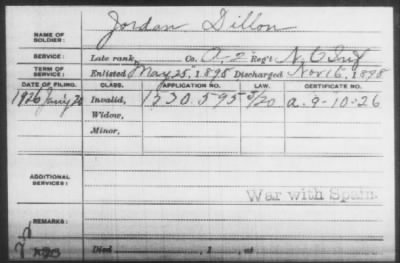 NAME OF SOLDIER: Jordan Dillon
SERVICE: Late rank, Co. O-2 Reg't N.C. Inf
TERM OF SERVICE: Enlisted May 25, 1898 Discharged Nov 16, 1898
DATE OF FILING. CLASS. APPLICATION NO. LAW. CERTIFICATE NO.
1926 Jan'y 20 Invalid, 1530.595 5/20 a. 9-10-26
Widow,
Minor,
ADDITIONAL SERVICES:
War with Spain.
REMARKS:
Died , 1 , at